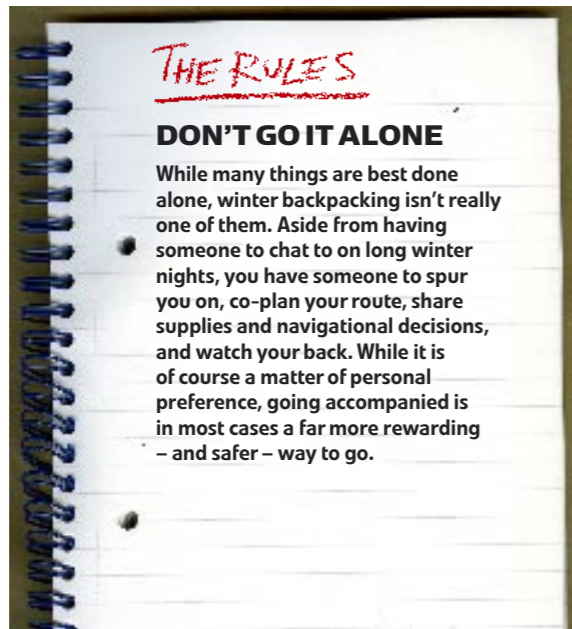 THE RULES
DON'T GO IT ALONE
While many things are best done
alone, winter backpacking isn't really
one of them. Aside from having
someone to chat to on long winter
nights, you have someone to spur
you on, co-plan your route, share
supplies and navigational decisions,
and watch your back. While it is
of course a matter of personal
preference, going accompanied is
in most cases a far more rewarding
– and safer – way to go.